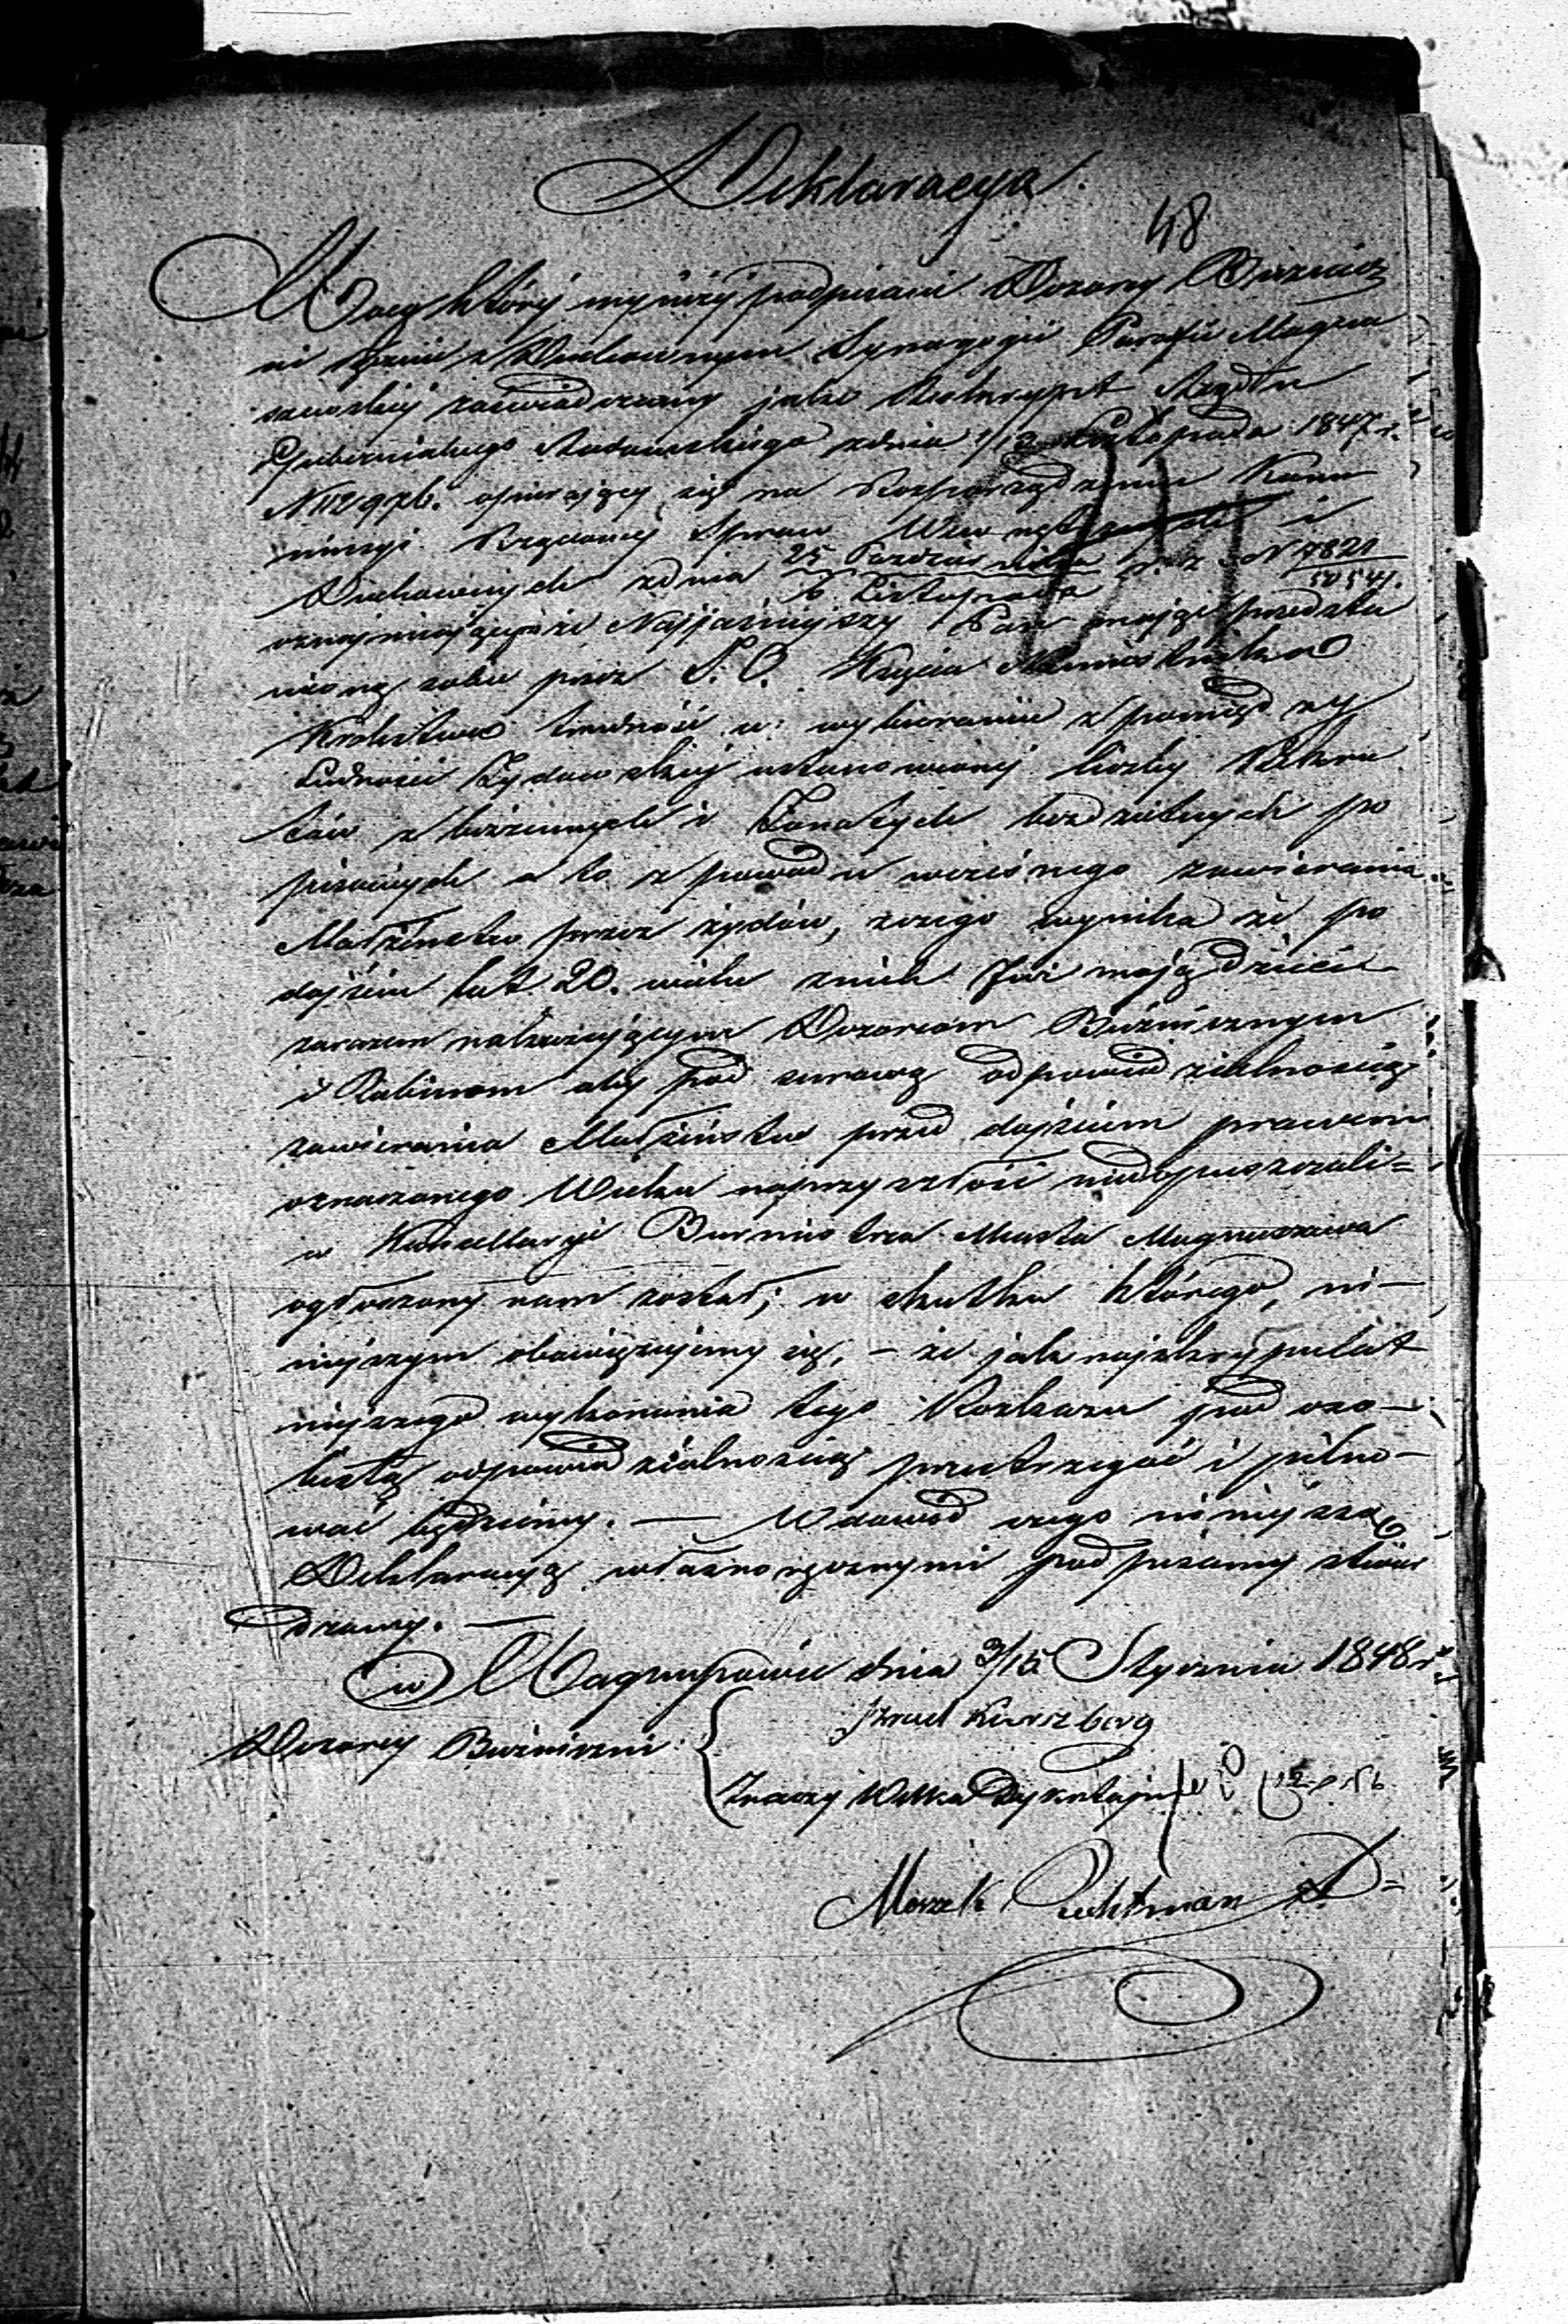 Deklaracya.
48
Mocą której my niżej podpisani Dozorcy Bóżnicz
ni łącznie z Duchownym Synagogii Parafii Magnu
szewskiej zaświadczamy jako Reskrypt Rządu
Gubernialnego Radomskiego z dnia 1/13 Listopada 1847 r.
N 112976. opierający się na Rozporządzeniu Kom
missyi Rządowej Spraw Wewnętrznych i
Duchownych z dnia 25 Październike r. z. N 7821
6 Listopada 50541.
oznajmiający że Najjaśniejszy Pan mając przedsta
wioną sobie przez J. O. Księcia Namiestnika
Królestwa trudność w wybieraniu z pomiędzy
Ludności Żydowskiej ustanowionej liczby Rekru
tów z bezżennych i Żonatych bezdzietnych po
pisowych a to z powodu wcześnego zawierania
Małżeństw przez żydów, z czego wynika że po
dojściu lat 20. wielu z nich Już mają dzieci
zarazem nakazującym Dozorcom Bóżnicznym
i Rabinom aby pod surową odpowiedzialnością
zawierania Małżeństw przed dojściem prawem
oznaczonego Wieku naprzyszłość niedopuszczali=
w Kancellaryi Burmistrza Miasta Magnuszewa
ogłoszony nam został; w skutku którego, ni-
niejszym obowiązujemy się, – że jak najskrypulat
niejszego wykonania tego Rozkazu pod oso-
bistą odpowiedzialnością przestrzegać i pilno-
wać będziemy. — W dowód czego niniejszą
Deklaracyą własnoręcznymi podpisamy stwier
dzamy. —
w Magnuszewie dnia 3/15 Stycznia 1848 r.
Izrael Kierszberg
Dozorcy Bóżniczni
Moszek Puchtman